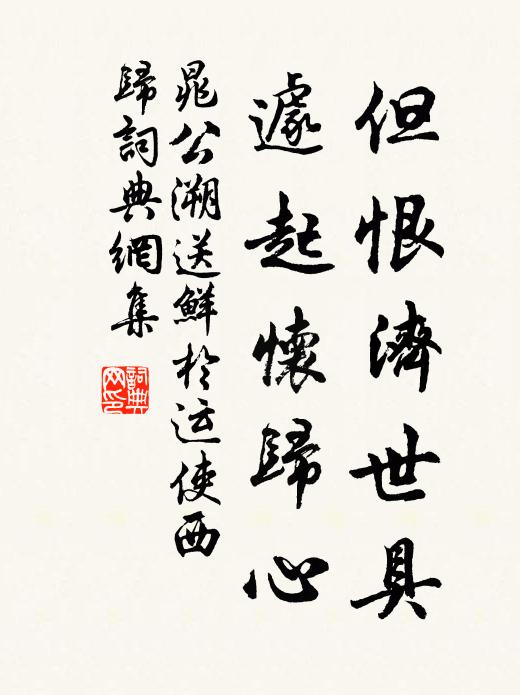 但恨濟世具
遽起懷歸心
晁公溯送鮮於运使西
歸詞典網集
詞典网印